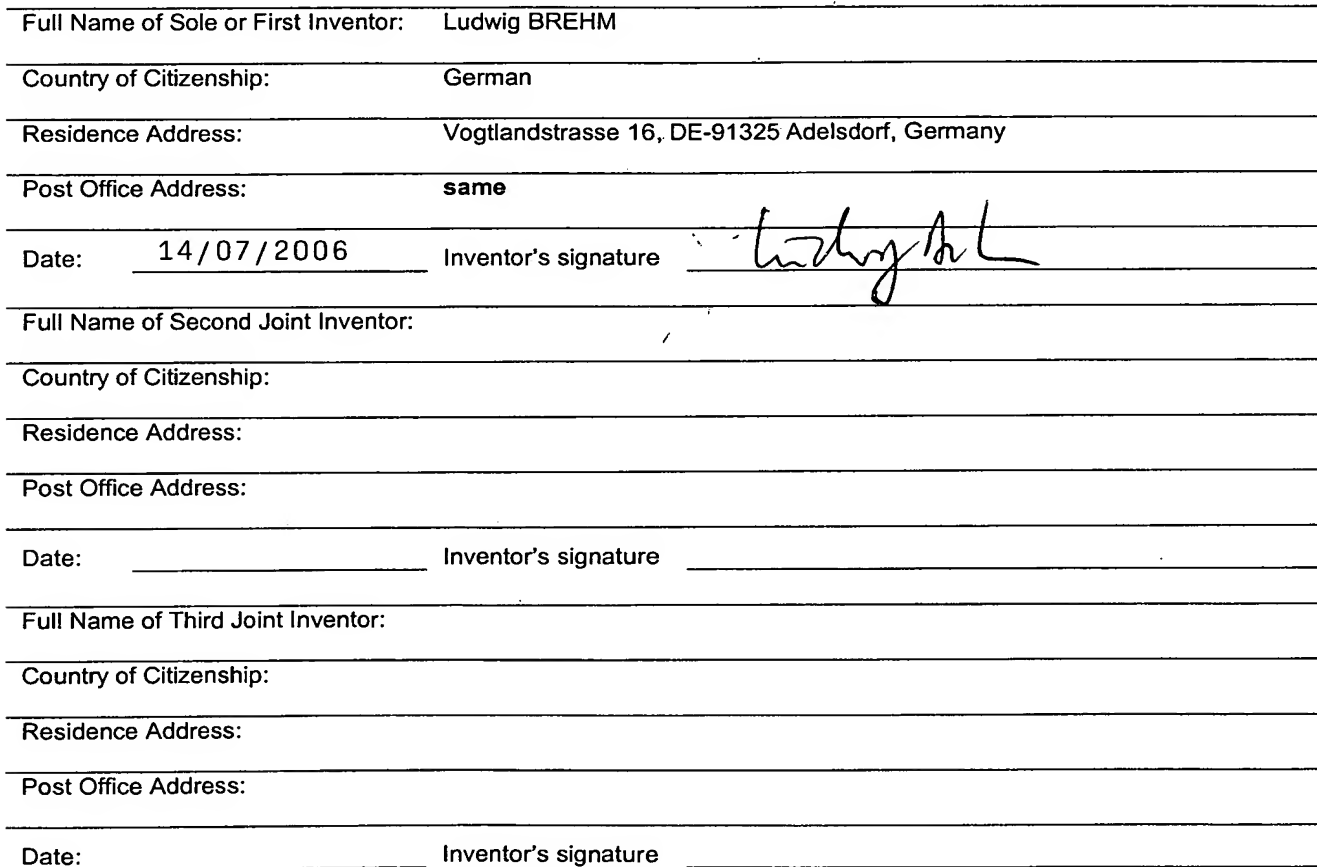 Full Name of Sole or First Inventor: Ludwig BREHM
Country of Citizenship: German
Residence Address: Vogtlandstrasse 16, DE-91325 Adelsdorf, Germany
Post Office Address: same
Date: 14/07/2006 Inventor's signature Ludwig
Full Name of Second Joint Inventor:
Country of Citizenship:
Residence Address:
Post Office Address:
Date: Inventor's signature
Full Name of Third Joint Inventor:
Country of Citizenship:
Residence Address:
Post Office Address:
Date: Inventor's signature